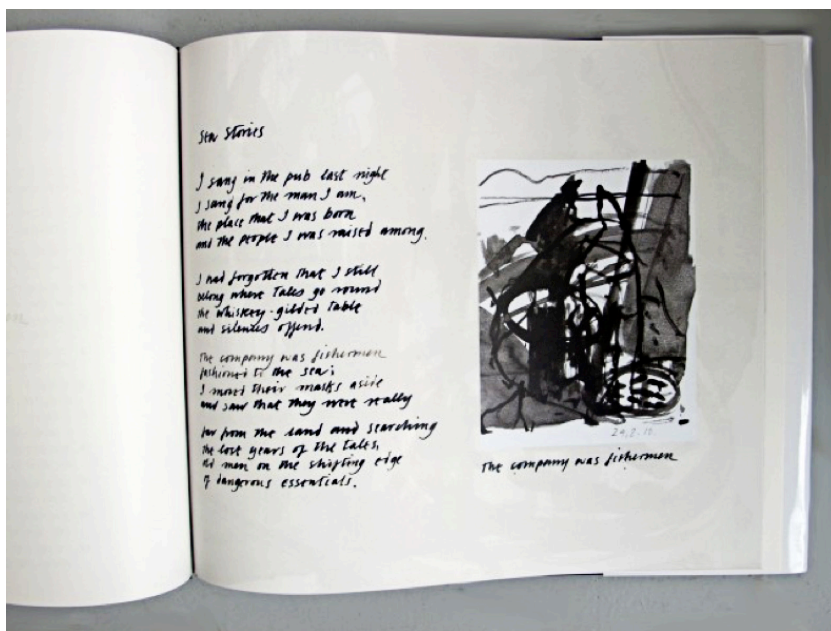 Sea Stories
I sang in the pub last night
I sang for the man I am,
the place that I was born
and the people I was raised among.
I had forgotten that I still
belong where tales go round
the whiskey-gilded table
and silences offend.
The company was fishermen
fashioned to the sea;
I moved their masks aside
and saw that they were really
far from the land and searching
the lost years of the tales,
old men on the shifting edge
of dangerous essentials.
24.2.10.
The company was fishermen